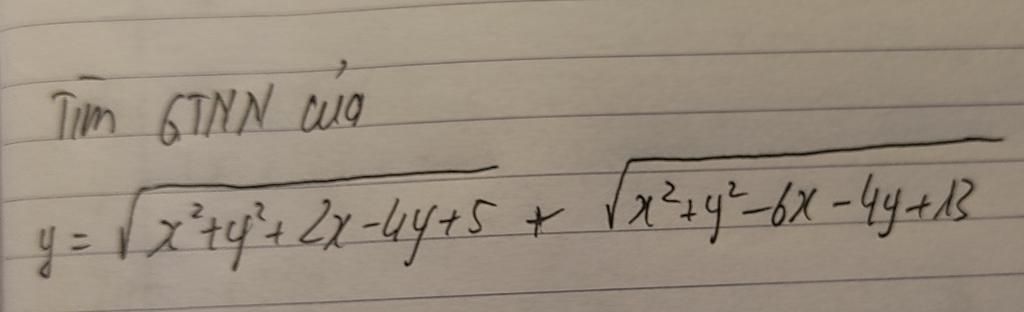 Tìm GTNN của
y = √(x²+y²+2x-4y+5) + √(x²+y²-6x-4y+13)